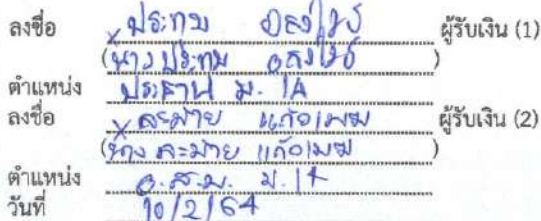 ลงชื่อ ประทุม ผู้รับเงิน (1)
(นางประทุม )
ตำแหน่ง ประธาน ม. 14
ลงชื่อ ละม่าย แก้วเมฆ ผู้รับเงิน (2)
(นาง ละม่าย แก้วเมฆ )
ตำแหน่ง อ.ส.ม. ม. 14
วันที่ 10/2/64